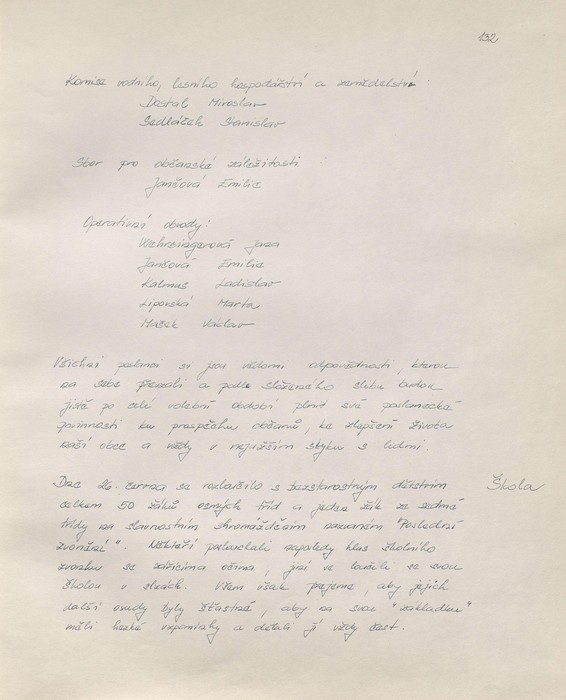 132
Komise vodního, lesního hospodářství a zemědělství:
Dostal Miroslav
Sedláček Stanislav
Sbor pro občanské záležitosti
Jančová Emilie
Operativní obvody:
Jana
Jančová Emilie
Kalmus Ladislav
Liporská Marta
Mašek Václav
Všichni poslanci si jsou vědomi odpovědnosti, kterou
na sebe převzali a podle složeného slibu budou
jistě po celé volební období plnit své poslanecké
povinnosti ku prospěchu občanů, ke zlepšení života
naší obce a vždy v nejužším styku s lidmi.
Dne 26. června se rozloučilo s bezstarostným dětstvím Škola
celkem 50 žáků osmých tříd a jeden žák ze sedmé
třídy na slavnostním shromážděním nazvaném "Poslední
zvonění". Někteří poslouchali naposledy hlas školního
zvonku se zářícíma očima, jiní se loučili se svou
školou v slzách. Všem však přejeme, aby jejich
další osudy byly šťastné, aby na svou "základku"
měli hezké vzpomínky a dělali jí vždy čest.